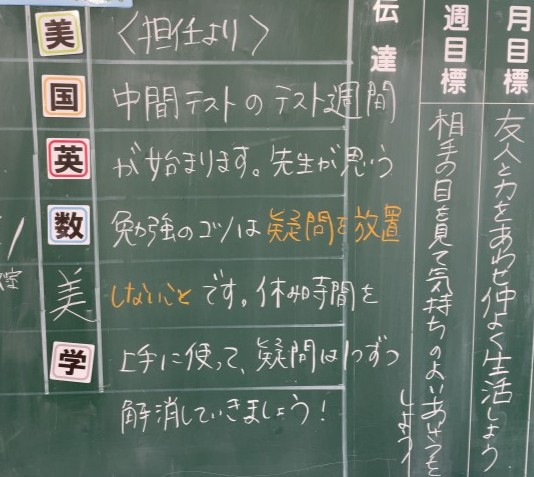 月目標
友人と力をあわせ仲よく生活しよう
週目標
相手の目を見て気持ちのよいあいさつを
しよう
伝達
〈担任より〉
中間テストのテスト週間
が始まります。先生が思う
勉強のコツは疑問を放置
しないことです。休み時間を
上手に使って、疑問は1つずつ
解消していきましょう！
美
国
英
数
美
学